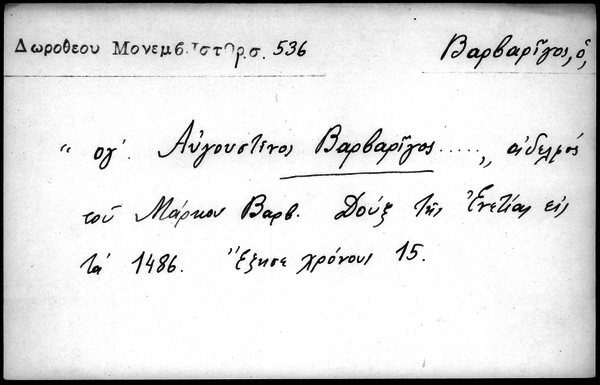 Δωροθεου Μονεμβ. Ιστορ. σ. 536
Βαρβαρῖγος, ὁ,
“ ογ΄. Αὐγουστῖνος Βαρβαρῖγος.....„ ἀδελφός
τοῦ Μάρκου Βαρβ. Δούξ τῆς Ἐνετίας εἰς
τά 1486. Ἔζησε χρόνους 15.